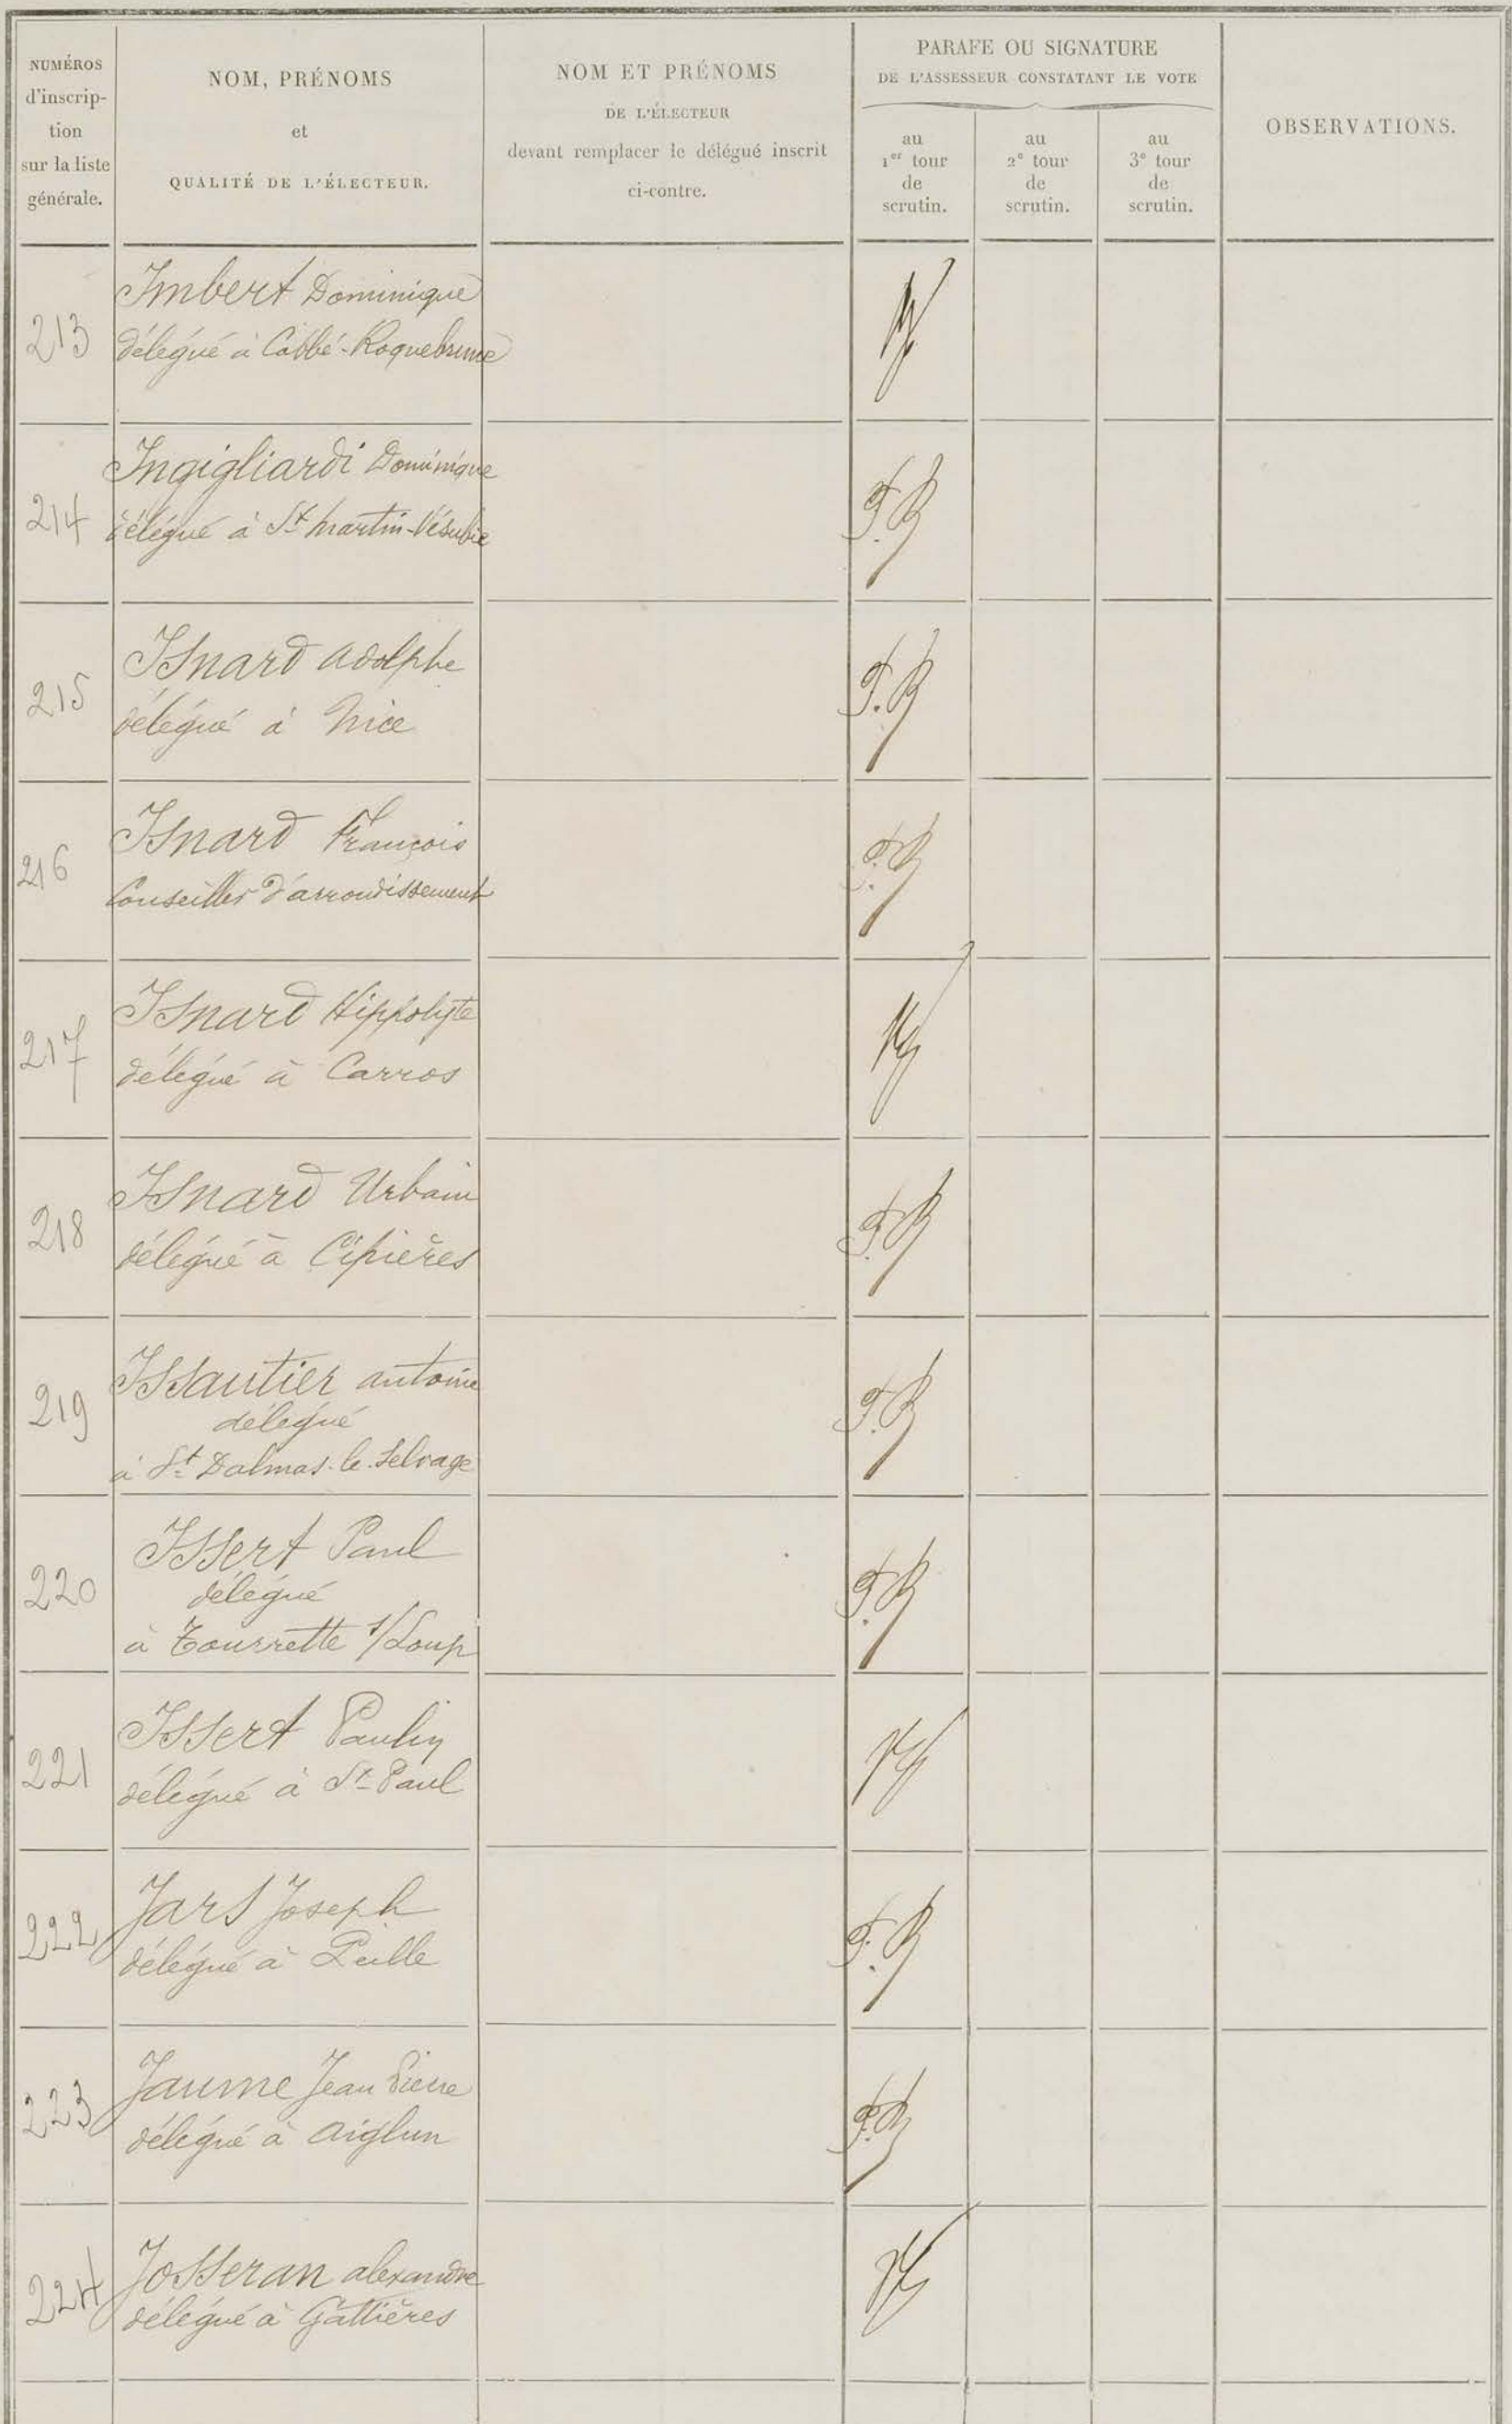 NUMÉROS
d'inscrip-
tion
sur la liste
générale.
NOM, PRÉNOMS
et
QUALITÉ DE L'ÉLECTEUR.
NOM ET PRÉNOMS
DE L'ÉLECTEUR
devant remplacer le délégué inscrit
ci-contre.
PARAFE OU SIGNATURE
DE L'ASSESSEUR CONSTATANT LE VOTE
au
1er tour
de
scrutin.
au
2e tour
de
scrutin.
au
3e tour
de
scrutin.
OBSERVATIONS.
213
Imbert Dominique
délégué à Cabbé-Roquebrune
214
Ingigliardi Dominique
délégué à St Martin-Vésubie
215
Isnard Adolphe
délégué à Nice
216
Isnard François
Conseiller d'arrondissement
217
Isnard Hippolyte
délégué à Carros
218
Isnard Urbain
délégué à Cipières
219
Issautier antoine
délégué
à St Dalmas-le-Selvage
220
Issert Paul
délégué
à Tourrette s/Loup
221
Issert Paulin
délégué à St-Paul
222
Jars Joseph
délégué à Peille
223
Jaume Jean Pierre
délégué à Aiglun
224
Josseran alexandre
délégué à Gattières